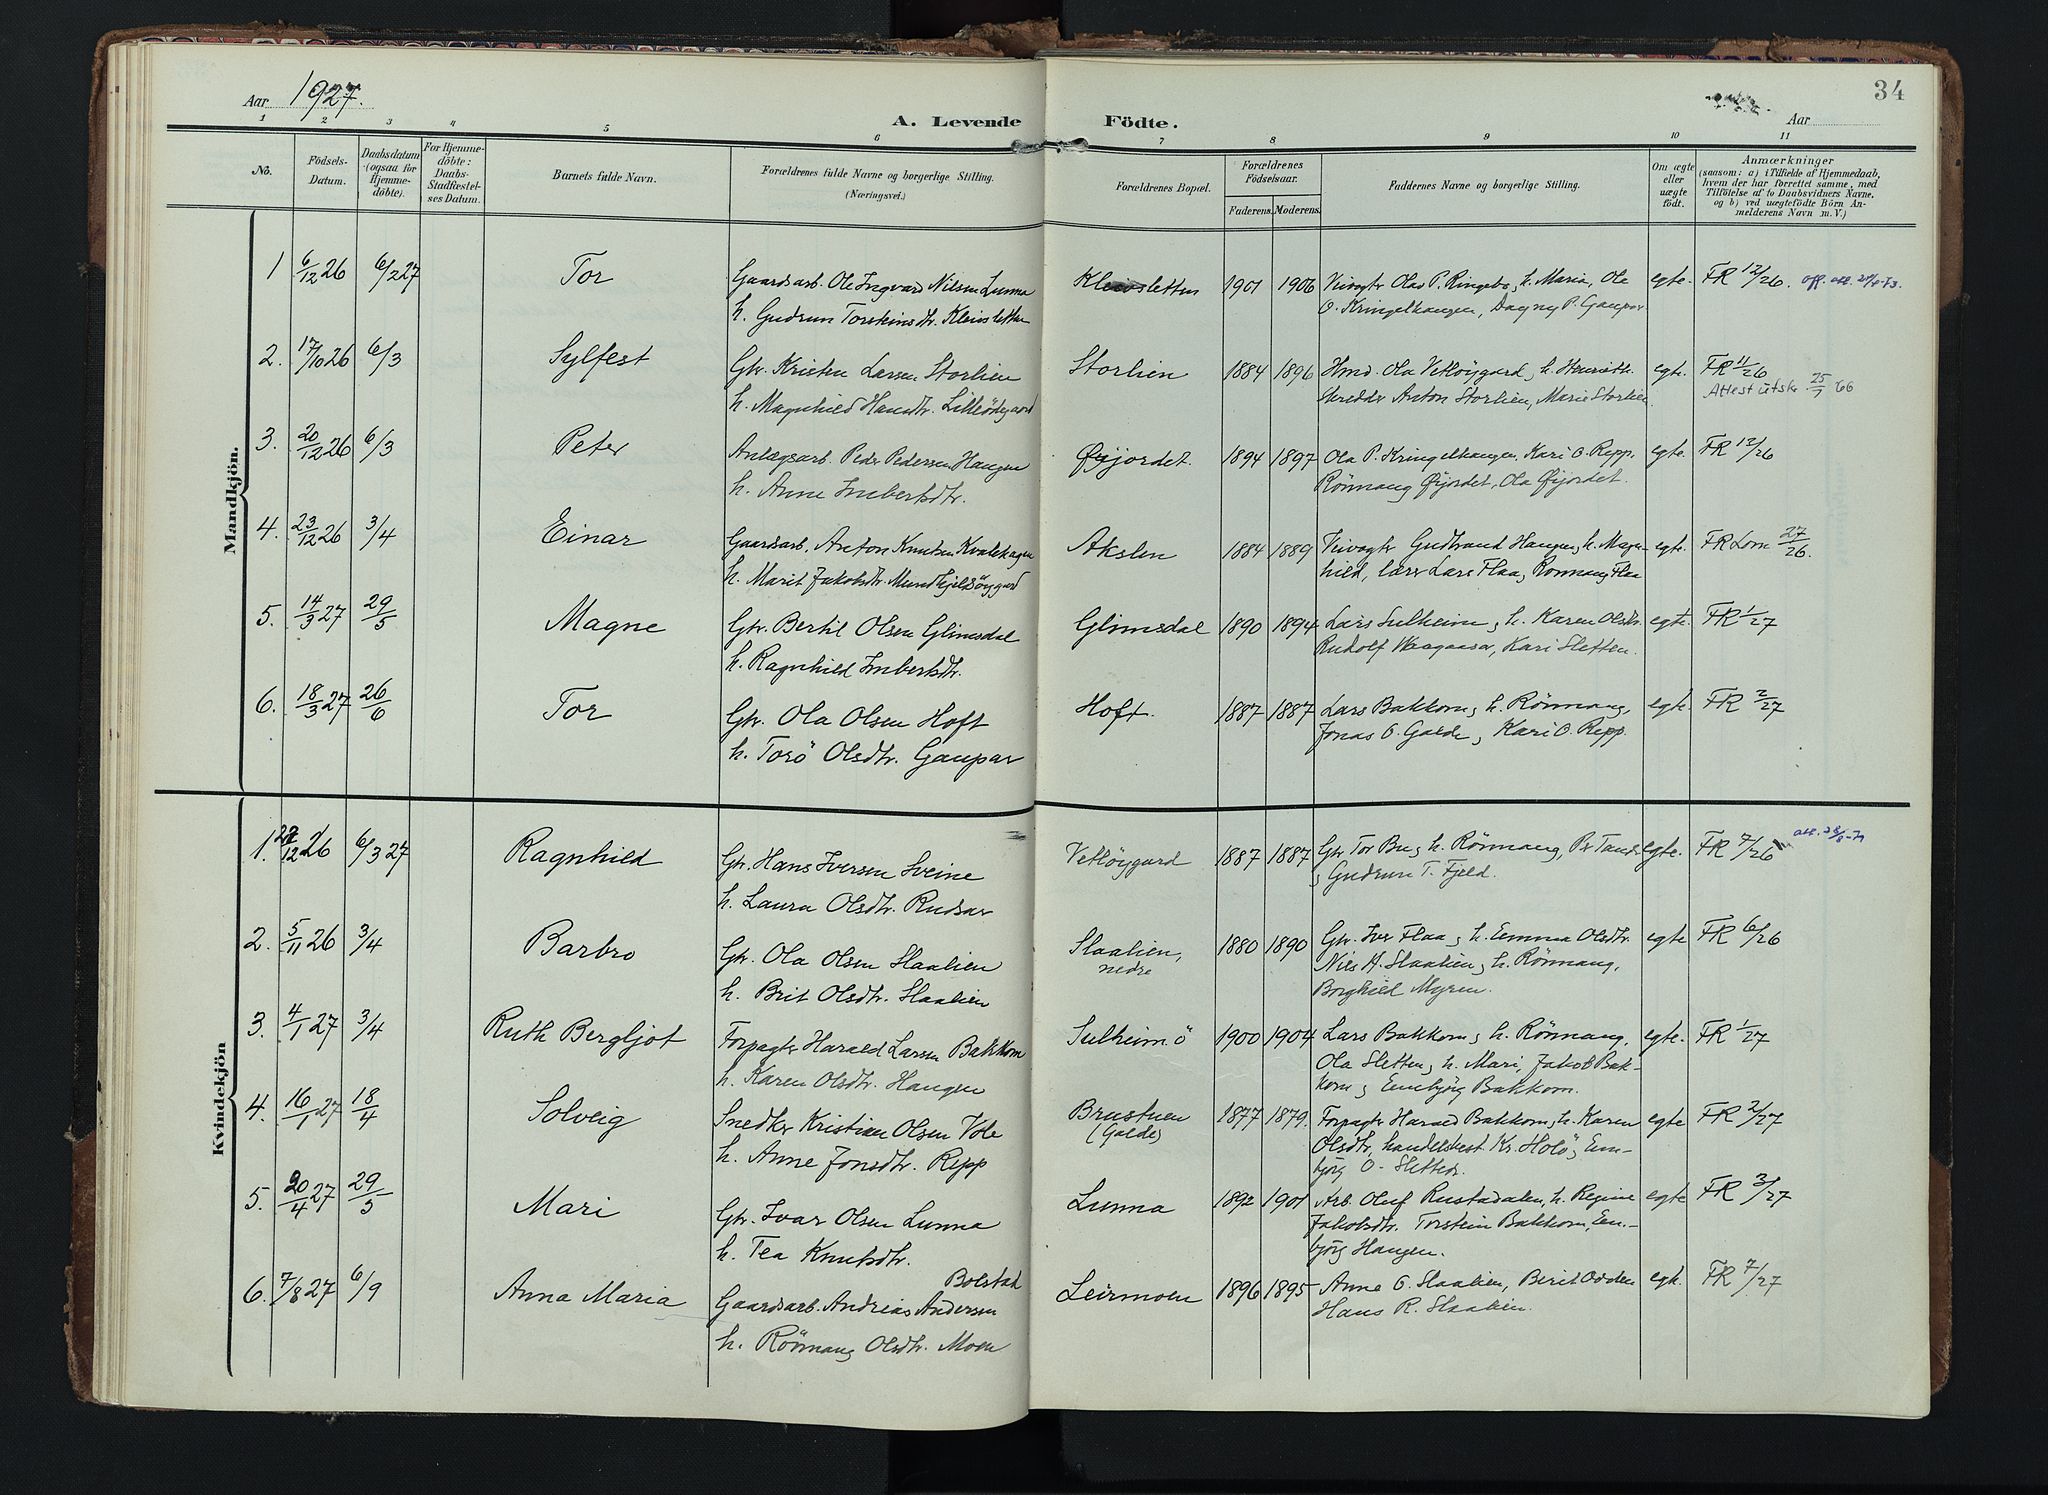 34
Aar 1927.
A. Levende Födte.
Aar
1 2 3 4 5 6 7 8 9 10 11
No.
Födsels-
Datum.
Daabsdatum
(ogsaa for
Hjemme-
döbte).
For Hjemme-
döbte:
Daabs-
Stadfæstel-
ses Datum.
Barnets fulde Navn.
Forældrenes fulde Navne og borgerlige Stilling.
(Næringsvei.)
Forældrenes Bopæl.
Forældrenes
Födselsaar.
Faderens. Moderens.
Faddernes Navne og borgerlige Stilling.
Om ægte
eller
uægte
födt.
Anmærkninger
(saasom: a) i Tilfælde af Hjemmedaab,
hvem der har forrettet samme, med
Tilföielse af to Daabsvidners Navne.
og b) ved uægtefödte Börn An-
melderens Navn m. V.)
Mandkjön.
1 6/12 26 6/2 27 Tor Gaardsarb. Ole Ingvard Nilsen Lunna Kleivsletten 1901 1906 Veivogter Olav P. Ringebo, h. Maria, Ole egte. FR 12/26.
h. Gudrun Torsteinsdtr. Kleivsletten O. Kringelhaugen, Dagny P. Gaupar
2. 17/10 26 6/3 Sylfest Gbr. Kristen Larsen Storlien Storlien 1884 1896 Hmd. Ola Vetlöygard, h. Henriette egte. FR 11/26
h. Magnhild Hansdtr. Lilleödegaard skredder Anton Storlien, Marie Storlien Attest utskr. 25/7 66
3. 20/12 26 6/3 Peter Anlægsarb. Peder Pedersen Haugen Øyjordet. 1894 1897 Ola P. Kringelhaugen, Kari O. Repp, egte. FR 13/26
h. Anne Imbertsdtr. Rönnaug Øijordet, Ola Øijordet.
4. 23/12 26 3/4 Einar Gaardsarb. Anton Knutsen Kvalehagen Akslen 1884 1889 Veivogter Gudbrand Haugen, h. Magn- egte. FR Lom 27/26.
h. Marit Jakobsdtr. Mundhjelsöygard hild, lærer Lars Flaa, Rönnaug Flaa
5. 14/3 27 29/5 Magne Gbr. Bertil Olsen Glimsdal Glimsdal 1890 1894 Lars Sulheim, h. Karen Olsdtr. egte. FR 1/27
h. Ragnhild Imbertsdtr. Rudolf Vaagaasar, Kari Sletten.
6. 18/3 27 26/6 Tor Gbr. Ola Olsen Hoft Hoft. 1887 1887 Lars Bakkom, h. Rönnaug, egte. FR 2/27
h. Torö Olsdtr. Gaupar Jonas O. Galde, Kari O. Repp.
Kvindekjön
1. /12 26 6/3 27 Ragnhild Gbr. Hans Iversen Sveine Vetlöygard 1887 1887 Gbr Tor Bu, h. Rönnaug, Per Tande egte. FR 7/26
h. Laura Olsdtr. Rudsar Gudrun T. Fjeld.
2. 5/11 26 3/4 Barbro Gbr. Ola Olsen Slaalien Slaalien, 1880 1890 Gbr. Iver Flaa, h. Emma Olsdtr. egte FR 6/26
nedre Nils H. Slaalien, h. Rönnaug,
h. Brit Olsdtr. Slaalien Borghild Myren.
3. 4/1 27 3/4 Ruth Bergljot Forpagter Harald Larsen Bakkom Sulheimö 1900 1904 Lars Bakkom, h. Rönnaug, egte. FR 1/27
h. Karen Olsdtr. Haugen Ola Sletten, h. Mari, Jakob Bak-
kom, Embjörg Bakkom.
4. 16/1 27 18/4 Solveig Snedker Kristian Olsen Vole Brustuen 1877 1879. Forpagter Harald Bakkom, h. Karen egte FR 2/27
(Galde)
h. Anne Jonsdtr. Repp Olsdtr, handelsbest. Kr. Holö, Em-
björg O. Slettede.
5. 20/4 27 29/5 Mari Gbr. Ivar Olsen Lunna Lunna 1892 1901 Arb. Oluf Rustadalen, h. Regine egte FR 3/27
h. Tea Knutsdtr. Jakobsdtr. Torstein Bakkom, Em-
björg Haugen.
6. 7/8 27 6/9 Anna Maria Bolstad Leirmoen 1896 1895 Anne O. Slaalien, Birit Odden egte. FR 7/27
Gaardsarb. Andreas Andersen Hans R. Slaalien.
h. Rönnaug Olsdtr. Moen